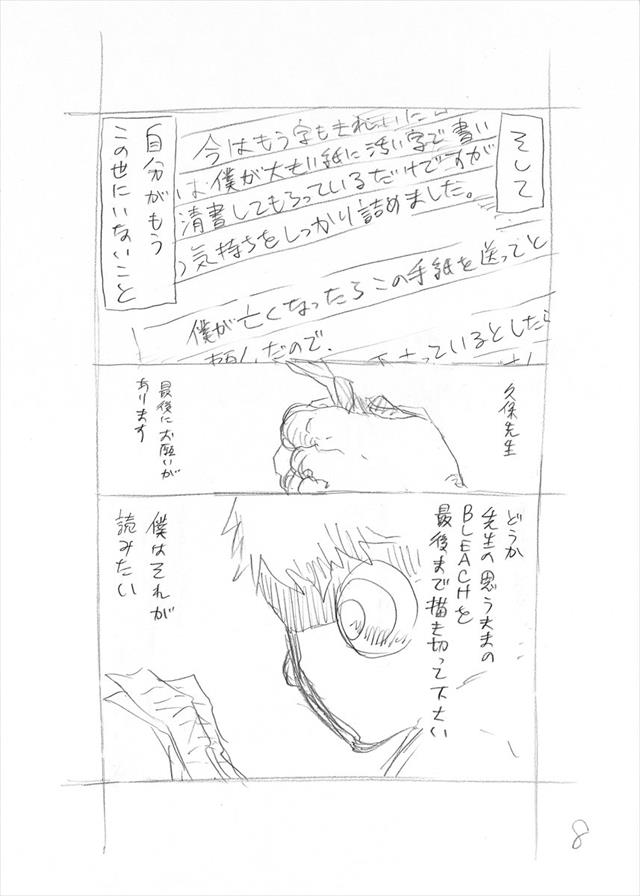 そして
今はもう字もきれいに
は僕が大もい紙に汚い字で書い
清書してもらっているだけですが
気持ちをしっかり詰めました。
僕が亡くなったらこの手紙を送ってと
だので、
さっているとしたら
自分がもう
この世にいないこと
久保先生
最後にお願いが
あります
どうか
先生の思うままの
BLEACHを
最後まで描き切って下さい
僕はそれが
読みたい
8